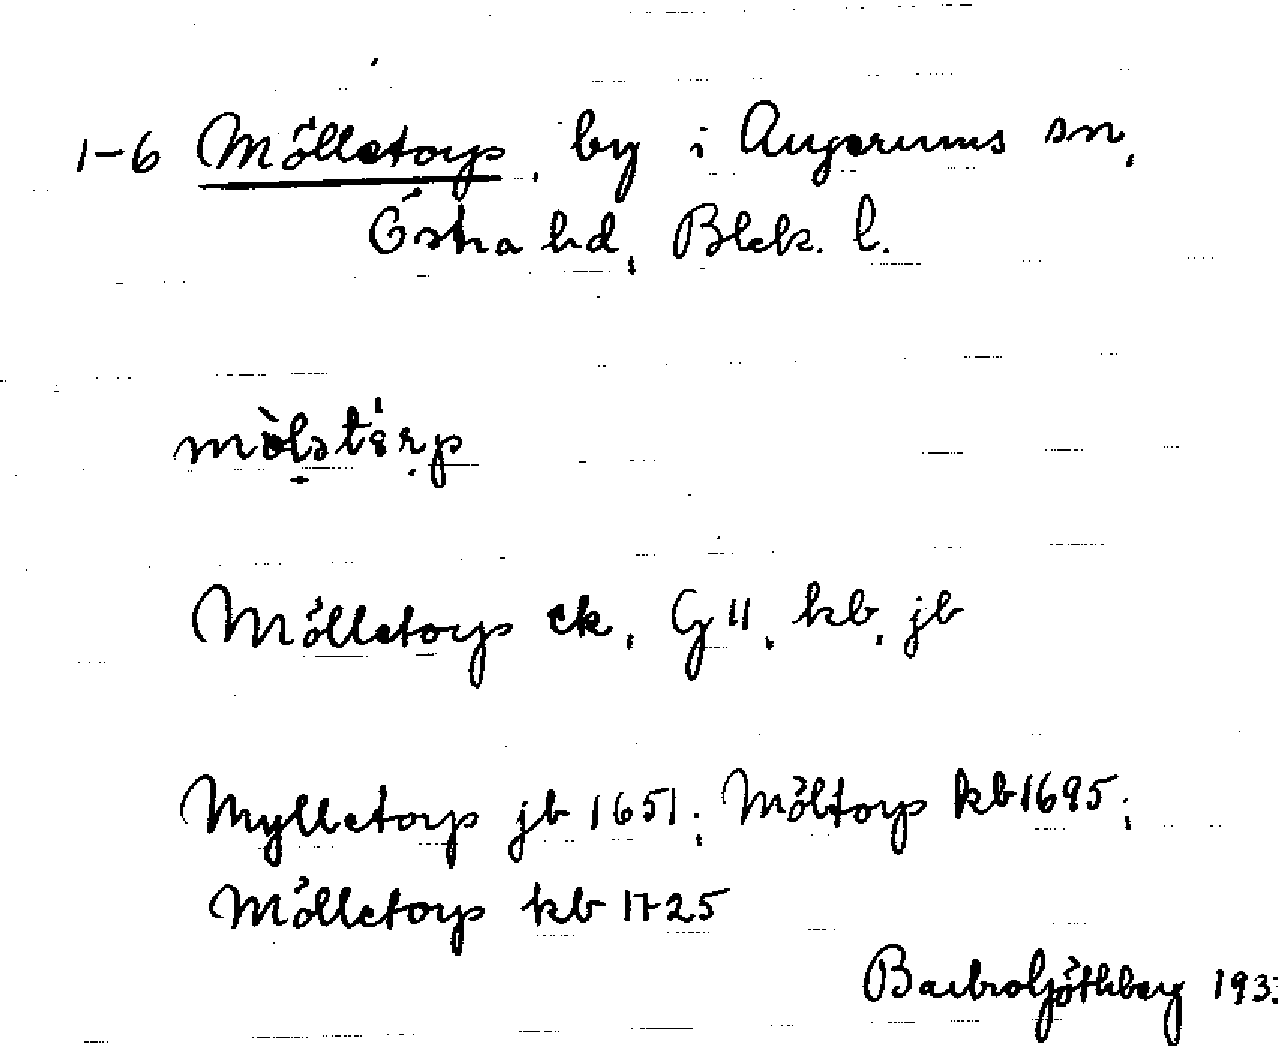 1-6 Mölletorp, by i Augerums sn,
Östra hd, Blek. l.
Mölletorp ek, G II, kb, jb
Mylletorp jb 1651; Möltorp kb 1695;
Mölletorp kb 1725
Barbro Göthberg 193